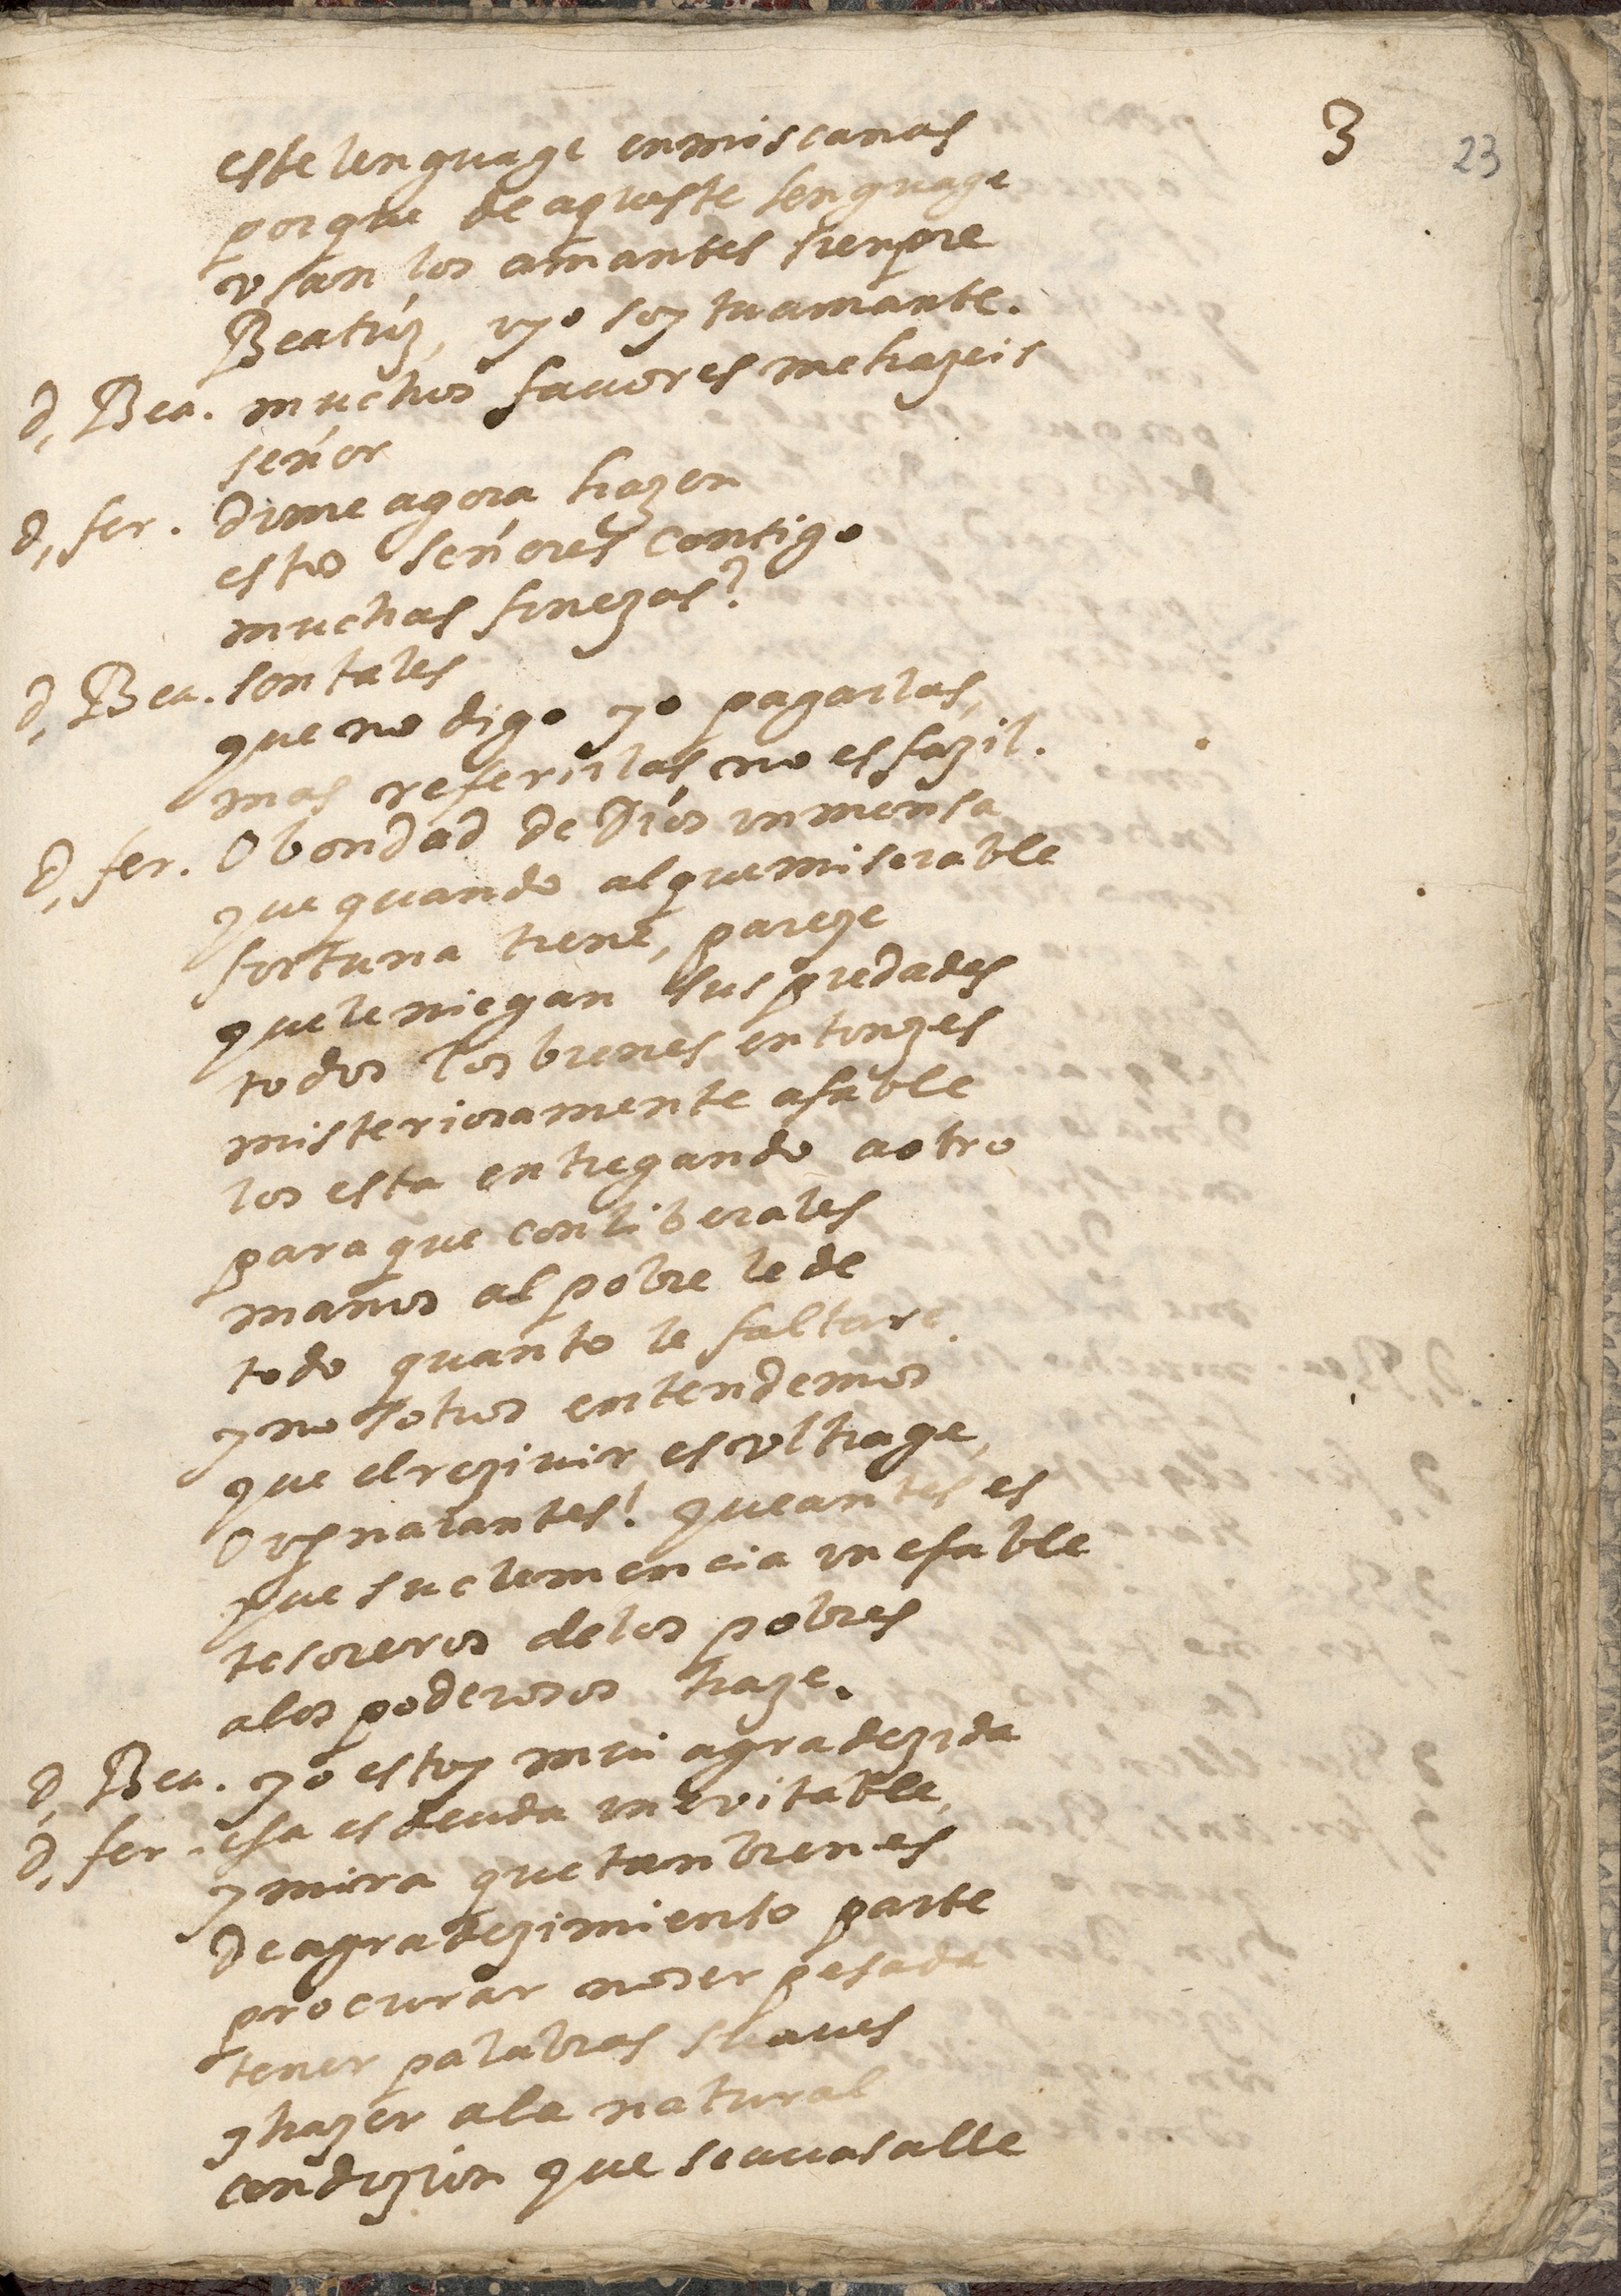 3
23
este lenguage en mis canas
porque de aqueste lenguage
vsan los amantes sienpre
Beatriz, yyo soy tu amante.
d, Bea. muchos fauores me hazeis
señor
d, fer. Dime agora hazen
estos señores contigo
muchas finezas?
d, Bea. son tales
que no digo yo pagarlas,
mas referirlas no es fazil.
d, fer. O bondad de Dios inmensa
que quando al que miserable
fortuna tiene, pareze
que le niegan sus piedades
todos los bienes entonzes
misteriosamente afable
los esta entregando a otro
para que con liberales
manos al pobre le de
todo quanto le faltare.
y nosotros entendemos
que el rezivir es vltrage,
O ygnorantes! que antes es
que su clemencia inefable
tesoreros de los pobres
a los poderosos haze.
d, Bea. yo estoy mui agradezida
d, fer. esa es deuda inevitable,
y mira que tanbien es
De agradezimiento parte
procurar no ser pesada
tener palabras suaues
y hazer a la natural
condizion que se auasalle